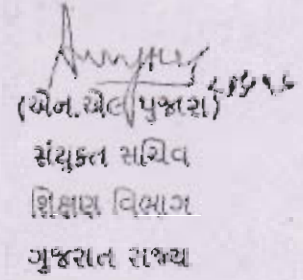 (એન.એલ.પુજારા)
સંયુક્ત સચિવ
શિક્ષણ વિભાગ
ગુજરાત રાજ્ય